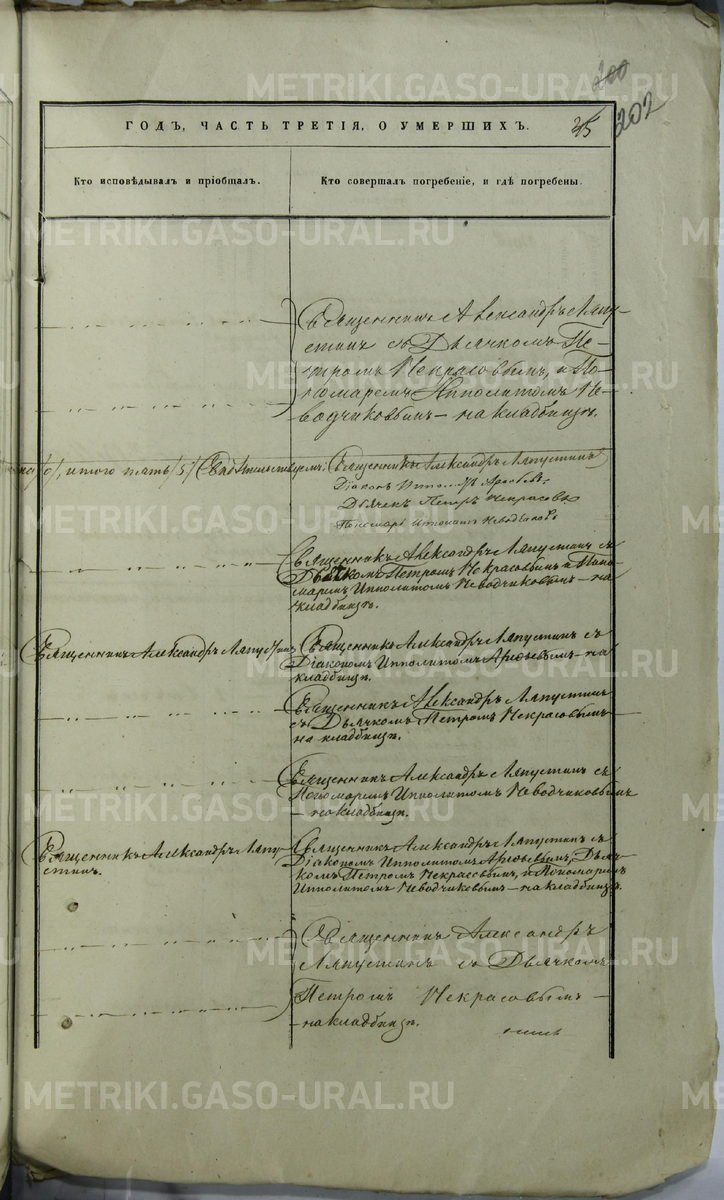 200
202
ГОДЪ, ЧАСТЬ ТРЕТІЯ, О УМЕРШИХЪ.
Кто исповѣдывалъ и пріобщалъ.
Кто совершалъ погребеніе, и гдѣ погребены.
Священникъ Александръ Ляпу-
стинъ съ Дьячкомъ Пе-
тромъ Некрасовымъ, и По-
номаремъ Ипполитомъ Не-
водчиковымъ – на кладбищѣ.
итого пять /5/ Свидѣтельствуемъ: Священникъ Александръ Ляпустинъ
Діаконъ Ипполитъ
Дьячекъ Петръ Некрасовъ
Пономарь Ипполитъ Неводчиковъ
Священникъ Александръ Ляпустинъ съ
Дьячкомъ Петромъ Некрасовымъ и Поно-
маремъ Ипполитомъ Неводчиковымъ – на
кладбищѣ.
Священникъ Александръ Ляпустинъ
Священникъ Александръ Ляпустинъ съ
Діакономъ Ипполитомъ – на
кладбищѣ.
Священникъ Александръ Ляпустинъ
съ Дьячкомъ Петромъ Некрасовымъ –
на кладбищѣ.
Священникъ Александръ Ляпустинъ съ
Пономаремъ Ипполитомъ Неводчиковымъ
– на кладбищѣ.
Священникъ Александръ Ляпу-
стинъ.
Священникъ Александръ Ляпустинъ съ
Діакономъ Ипполитомъ Дьяч-
комъ Петромъ Некрасовымъ, и Пономаремъ
Ипполитомъ Неводчиковымъ – на кладбищѣ.
Священникъ Александръ
Ляпустинъ съ Дьячкомъ
Петромъ Некрасовымъ –
– на кладбищѣ.
METRIKI.GASO-URAL.RU